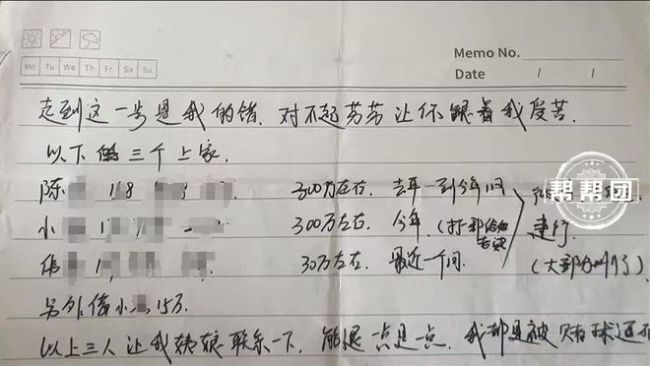 Memo No.
Mo Tu We Th Fr Sa Su
Date / /
走到这一步是我的错.对不起芳芳让你跟着我受苦.
以下的三个上家.
陈 118 300万左右. 去年一到今年间
小 1 300万左右. 今年.(打
伟 1 30万左右. 最近一个月.
建行
(大部分
另外借小 15万.
以上三人让我姨娘联系一下.能退一点是一点.我都是被赌球逼
帮帮团